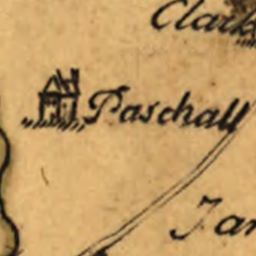 Clark
Paschall
Jan